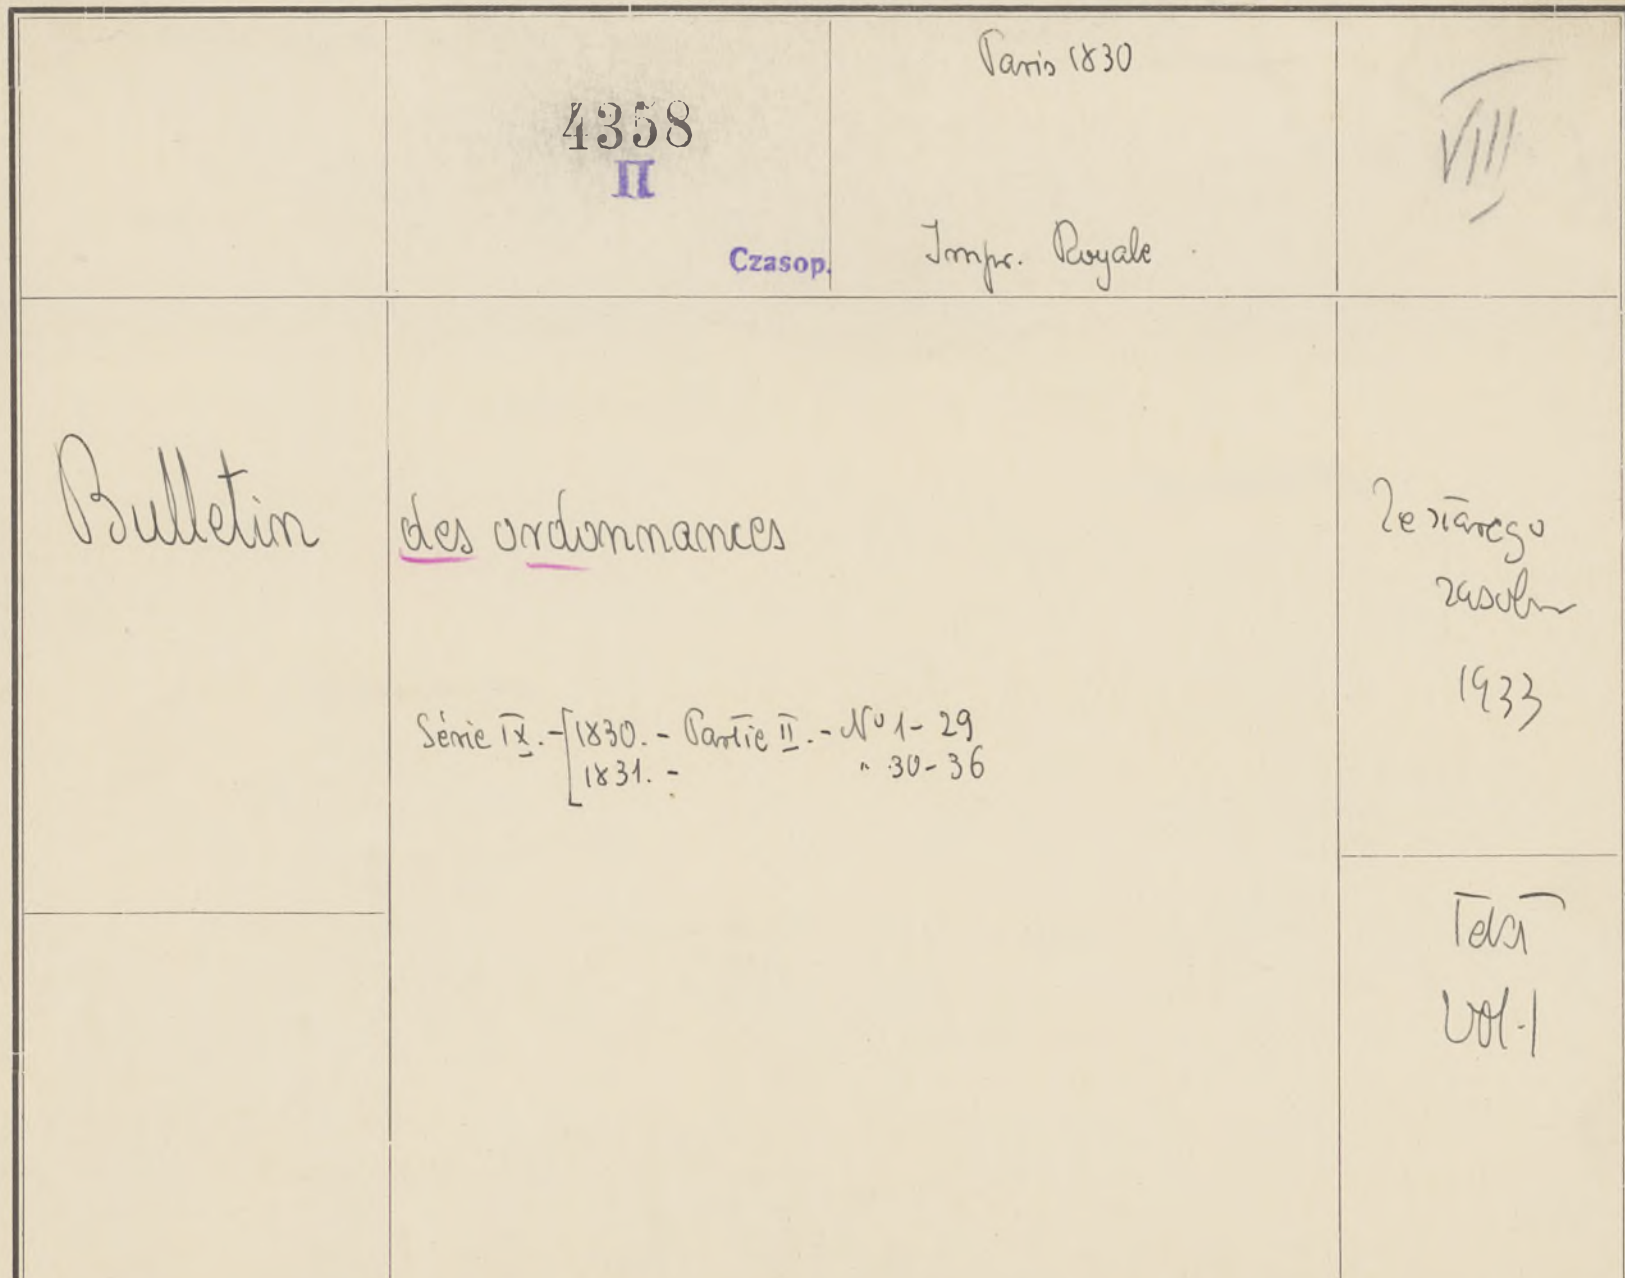 4358
II
Czasop.
Paris 1830
Impr. Royale
VIII
Bulletin des ordonnances
Série IX. - [1830. - Partie II. - No 1 - 29
1831. - " 30 - 36
Ze starego
zasobu
1933
vol. 1